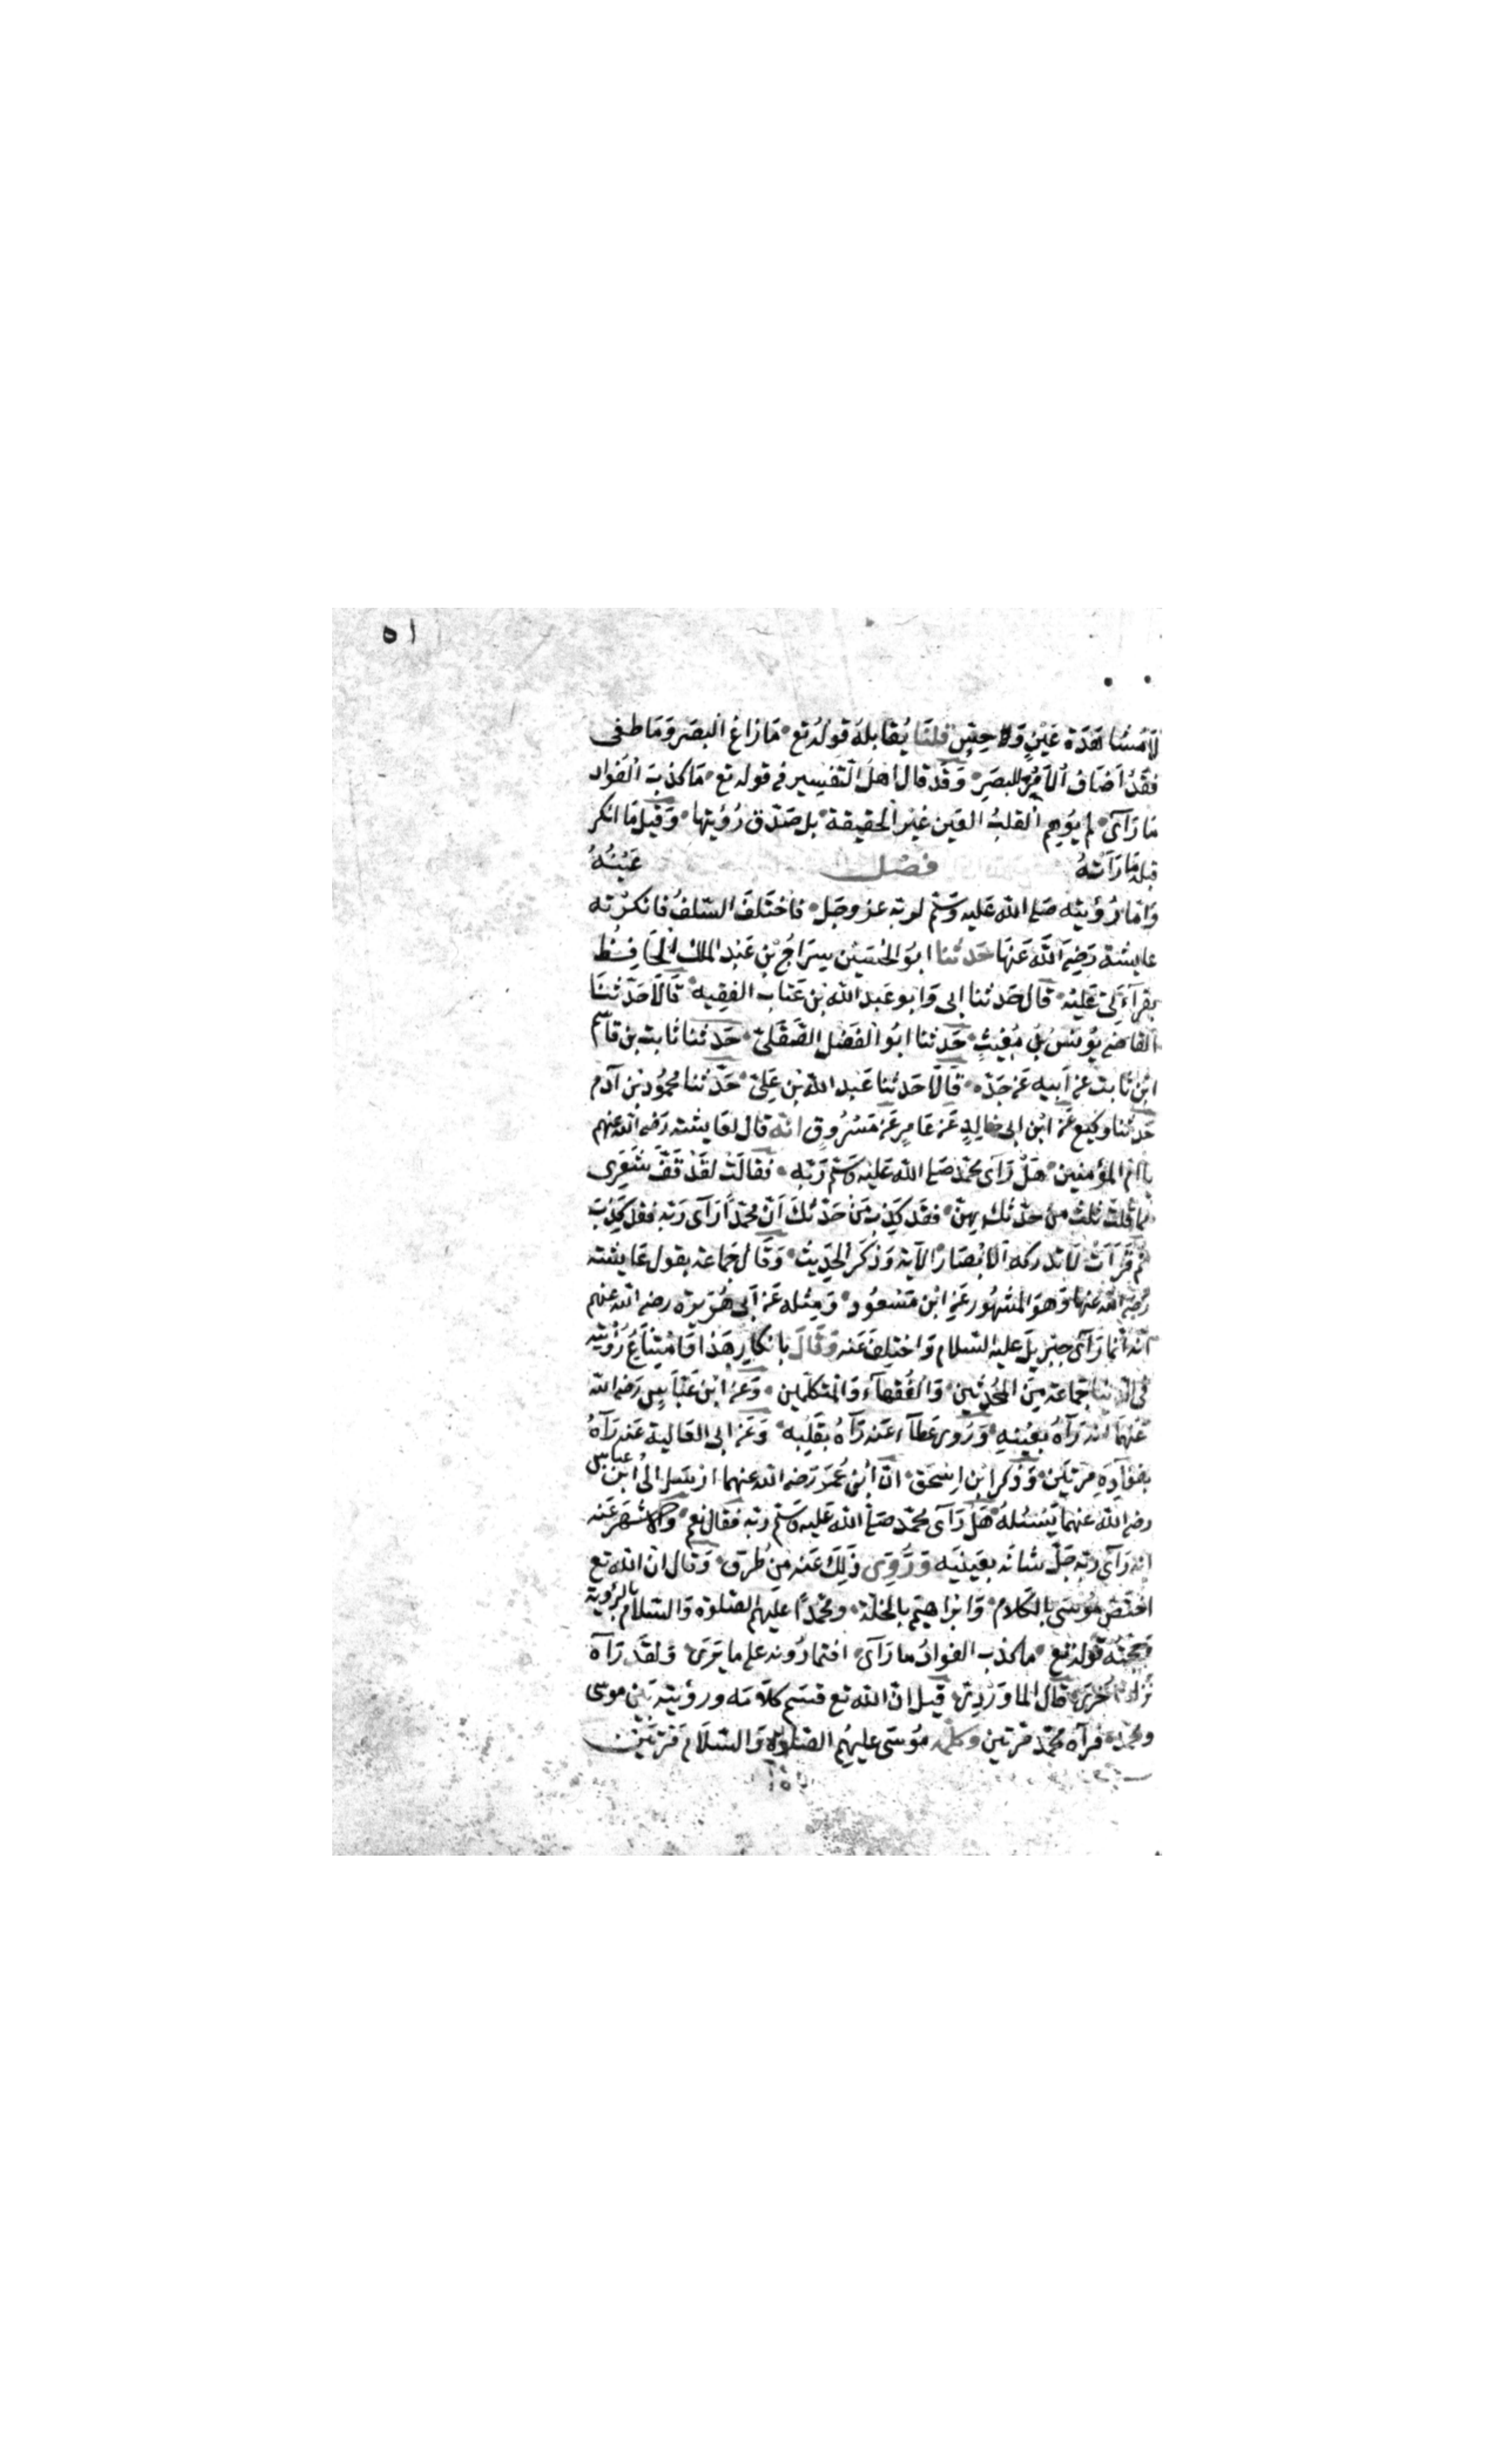 ٥١
لَامُشَاهَدَة عَيْنٍ وَلَا حِسٍّ قلنَا يُقابلهُ قولهُ تع مَا زَاغَ البَصَر وَمَا طغى
فقدْ اَضَافَ الاَمْرَ للبَصَرِ وَقَد قال اَهلُ التَفسِير فى قوله تع مَا كذبَ الفؤاد
مَا رَآى لم يوُهِم القلبُ العَين غيْر الحقيقة بل صَدق رُؤيتها وَقيلَ مَا انكر
قبله مَا رَآتهُ فصل عَيْنُهُ
وَامّا رُؤيته صَلى الله عَليه وَسَلم لربه عز وجَل فاختلفَ السّلفُ فانكرَته
عايشة رَضِىَ اللّه عَنهَا حَدثنا ابوُ الحُسَيْن سِرَاجُ بْن عَبْد الملك الحَافِظ
بقرآءَتى عَليْه قال حَدثنا ابى وَابو عَبد الله بن عَتابْ الفقِيه قَالاَ حَدّثنَا
القاضى يوُنسُ بْن مُغيثٍ حَدثنا ابُو الفَضْل الصَقَلىّ حَدثنا ثابت بن قاسم
ابْن ثابت عن اَبيه عَن جَدّه قَالاَ حَدثنا عَبد الله بن عَلىّ حَدّثنا محمُود بن آدم
حَدثنا وكيع عَن ابْن ابى خالِدٍ عَن عَامِرٍ عَن مَسْرُوقٍ انّه قال لعَايشة رَضى الله عنهم
يا ام المؤمنين هَلْ رَآى محمّد صَلى الله عَليه وَسَلم رَبّه فقالت لقَدْ قَفَّ شَعَرى
مما قلت ثلث من حَدّثك بهنّ فقَد كذِب مَن حَدّثكَ اَنّ محمّداً رَآى رَبّه فقد كَذِبَ
ثم قَرَأت لاَ تدركه الاَبْصَار الآية وَذكَر الحَدِيث وَقال جَماعة بقول عَايشة
رَضِى الله عنها وَهوَ المشهُور عَنِ ابْن مَسْعوُد وَمِثله عَن اَبى هُرَيرَة رضى الله عنهم
انّه انما رَآى جبْريلَ عليه السّلام وَاختلِفَ عَنه وَقالَ بانكارِ هَذا وَامْتناعُ رُؤيته
فى الدنيا جمَاعة مِن المحدّثين وَالفقهآء وَالمتكلّمين وَعَن ابْن عَبّاسٍ رَضى الله
عَنهمَا انه رَآهُ بعَيْنِهِ وَرَوى عَطآء عَنه رَآهُ بقَلبه وَعَن ابى العَالية عَنه رَآهُ
بفؤآدِهِ مَرتيَن وَذكر ابْن اِسْحَق انّ ابْن عُمَرَ رَضى الله عنهما ارسَل الى ابْن عباس
رضى الله عَنهما يَسْئلهُ هَلْ رَآى محمّد صَلى الله عَليه وَسَلم ربه فقال نعم وَالاشهَر عَنه
انه رَآى ربه جَلّ شانه بعَينيَه وَرُوِىَ ذَلِك عَنه من طُرق وَقال ان الله تع
اختَصّ موُسَى بالكلام وَابْرَاهيَم بالخلّة ومحَمّداً عليهم الصّلوة وَالسّلام بالرؤية
وَحجّته قوله تع ما كذب الفوادُ ما رَآى افتمارُونه على ما يَرى وَلقَد رَآه
نزلة اُخرى قال الماوَرْدِىّ قيل انّ الله تع قسَم كلاَمه ورؤيته بَين موسى
ومحمّد فرآه محَمّد مَرتين وكلّمه مُوسَى عليهُم الصّلوة وَالسّلام مَرتَيْن